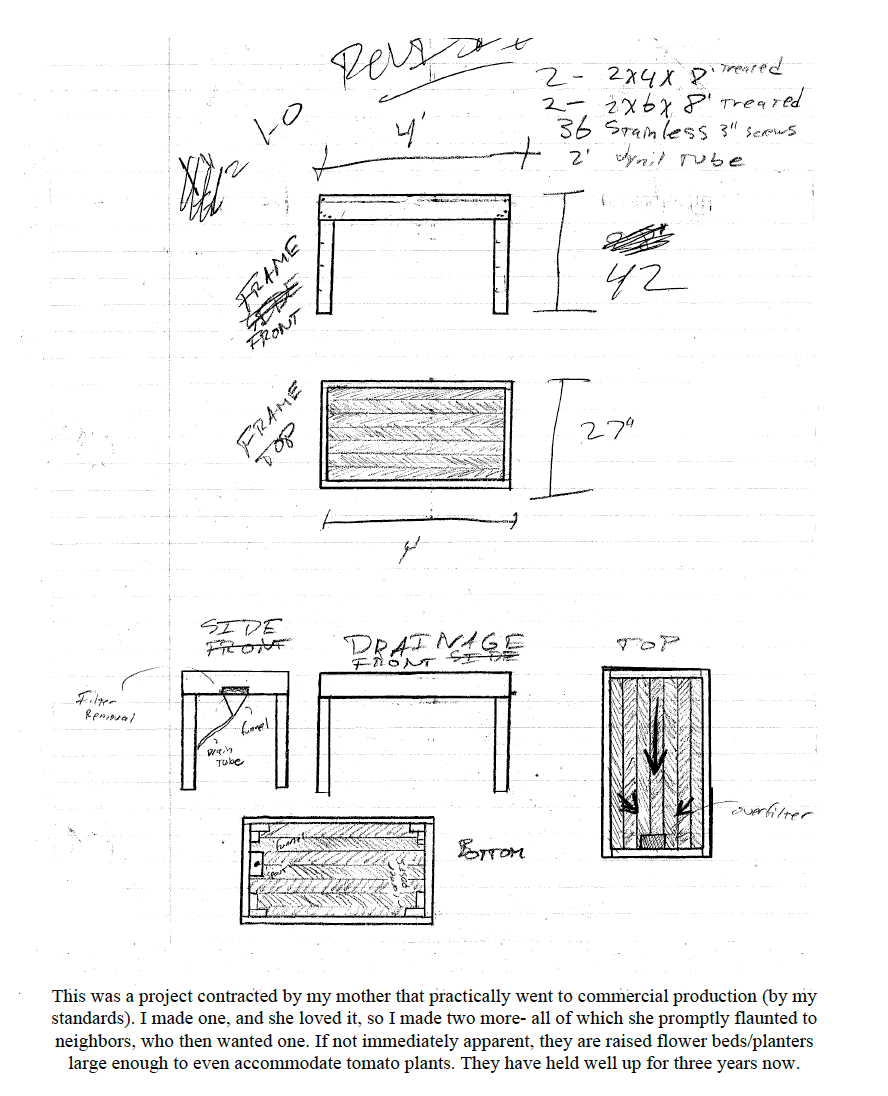 2 - 2x4x 8' Treated
2 - 2x6x 8' Treated
36 Stainless 3" screws
2' vynil TUBE
1-0
4'
FRAME
SIDE
FRONT
42
FRAME
TOP
27"
4'
SIDE
FRONT
DRAINAGE
FRONT SIDE
TOP
Filter
Removal
funnel
Drain
Tube
overfilter
funnel
BOTTOM
This was a project contracted by my mother that practically went to commercial production (by my
standards). I made one, and she loved it, so I made two more- all of which she promptly flaunted to
neighbors, who then wanted one. If not immediately apparent, they are raised flower beds/planters
large enough to even accommodate tomato plants. They have held well up for three years now.